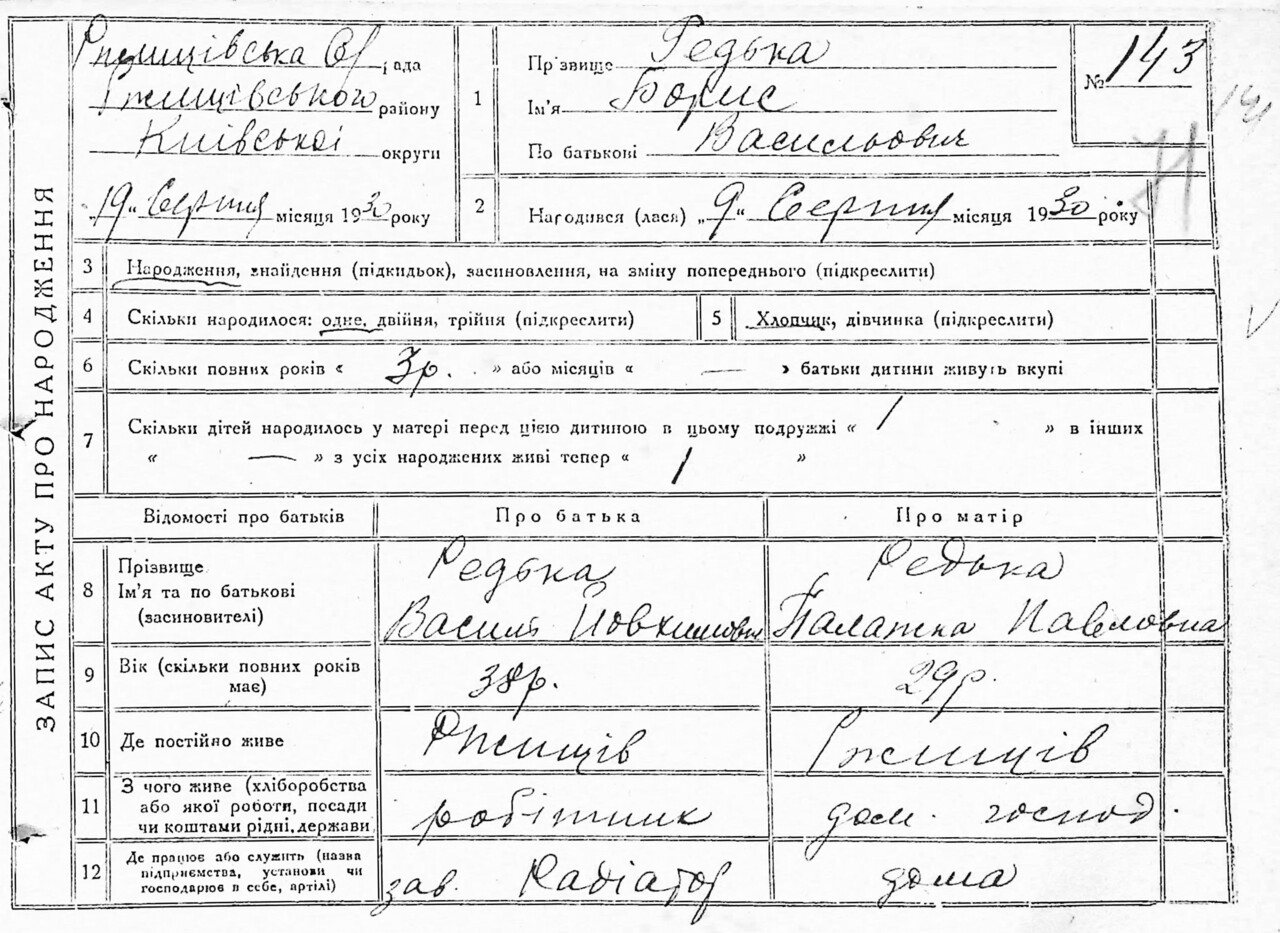 ЗАПИС АКТУ ПРО НАРОДЖЕННЯ
Ржищівська рада
Ржищівського району
Київської округи
"19" Серпня місяця 1930 року
1
Прізвище Редька
Ім'я Борис
По батькові Васильович
№ 143
2
Народився (лася) „9“ Серпня місяця 1930 року
3 Народження, знайдення (підкидьок), засиновлення, на зміну попереднього (підкреслити)
4 Скільки народилося: одне, двійня, трійня (підкреслити)
5 Хлопчик, дівчинка (підкреслити)
6 Скільки повних років « 3р. » або місяців « — » батьки дитини живуть вкупі
7 Скільки дітей народилось у матері перед цією дитиною в цьому подружжі « 1 » в інших
« — » з усіх народжених живі тепер « 1 »
Відомості про батьків Про батька Про матір
8
Прізвище
Ім'я та по батькові
(засиновителі)
Редька
Василь Йовхимович
Редька
Палажка Павловна
9
Вік (скільки повних років
має)
38р.
29р.
10 Де постійно живе Ржищів Ржищів
11
З чого живе (хліборобства
або якої роботи, посади
чи коштами рідні, держави
робітник
дом. господ.
12
Де працює або служить (назва
підприємства, установи чи
господарює в себе, артілі)
зав. Радіатор
дома